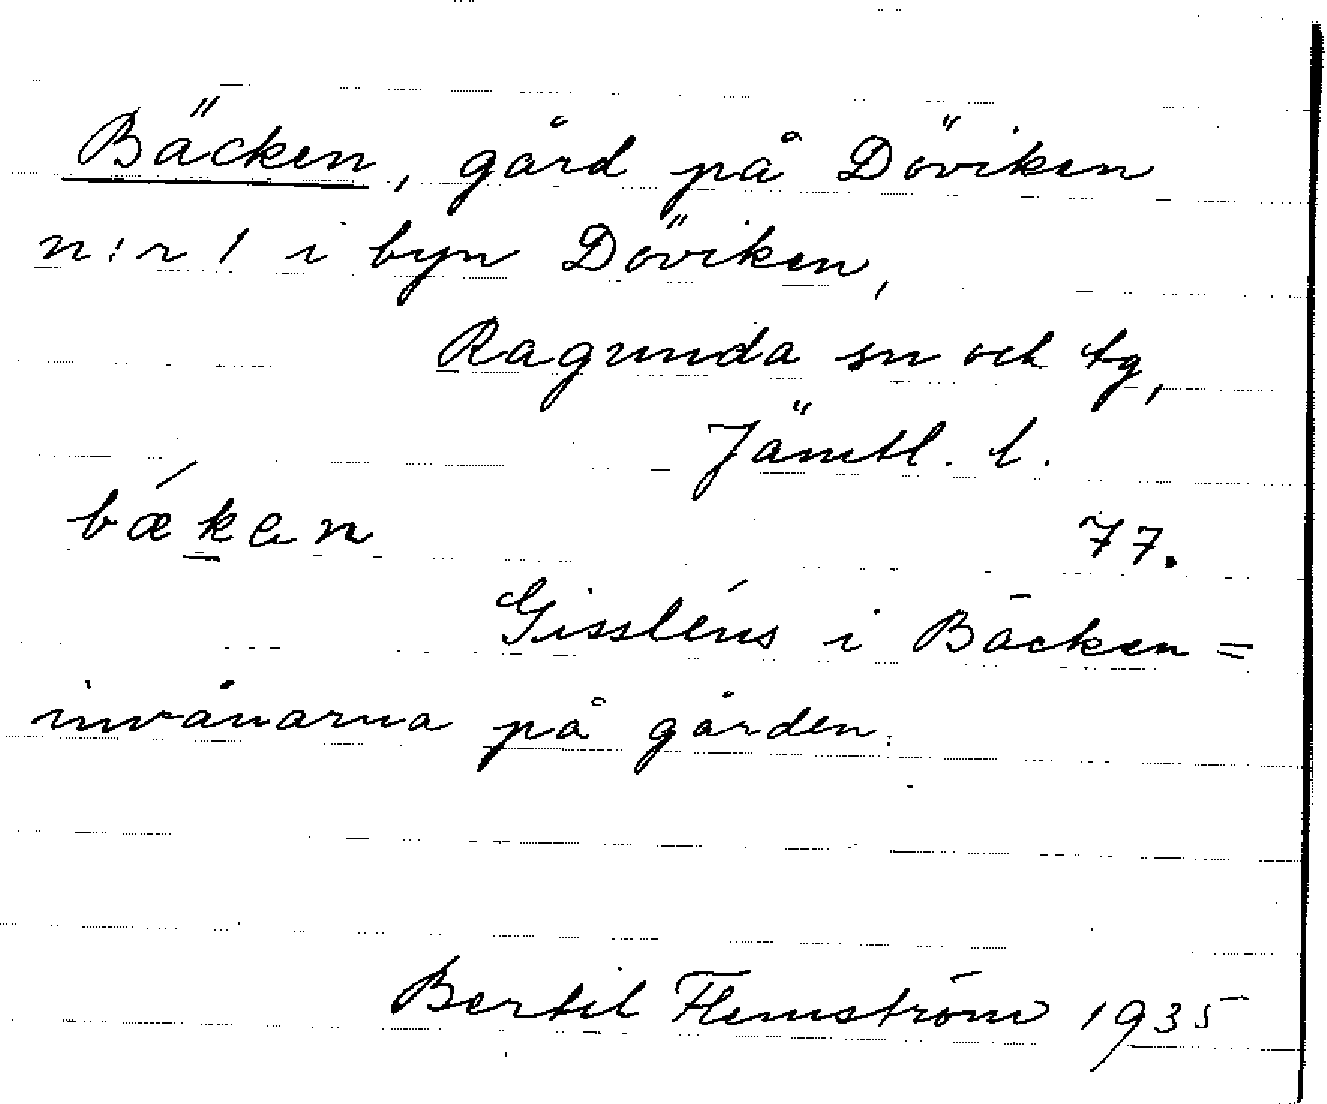 Bäcken, gård på Döviken
n:r 1 i byn Döviken,
Ragunda sn och tg,
Jämtl. l.
bǽken 77.
Gissléns i Bäcken =
invånarna på gården.
Bertil Flemström 1935